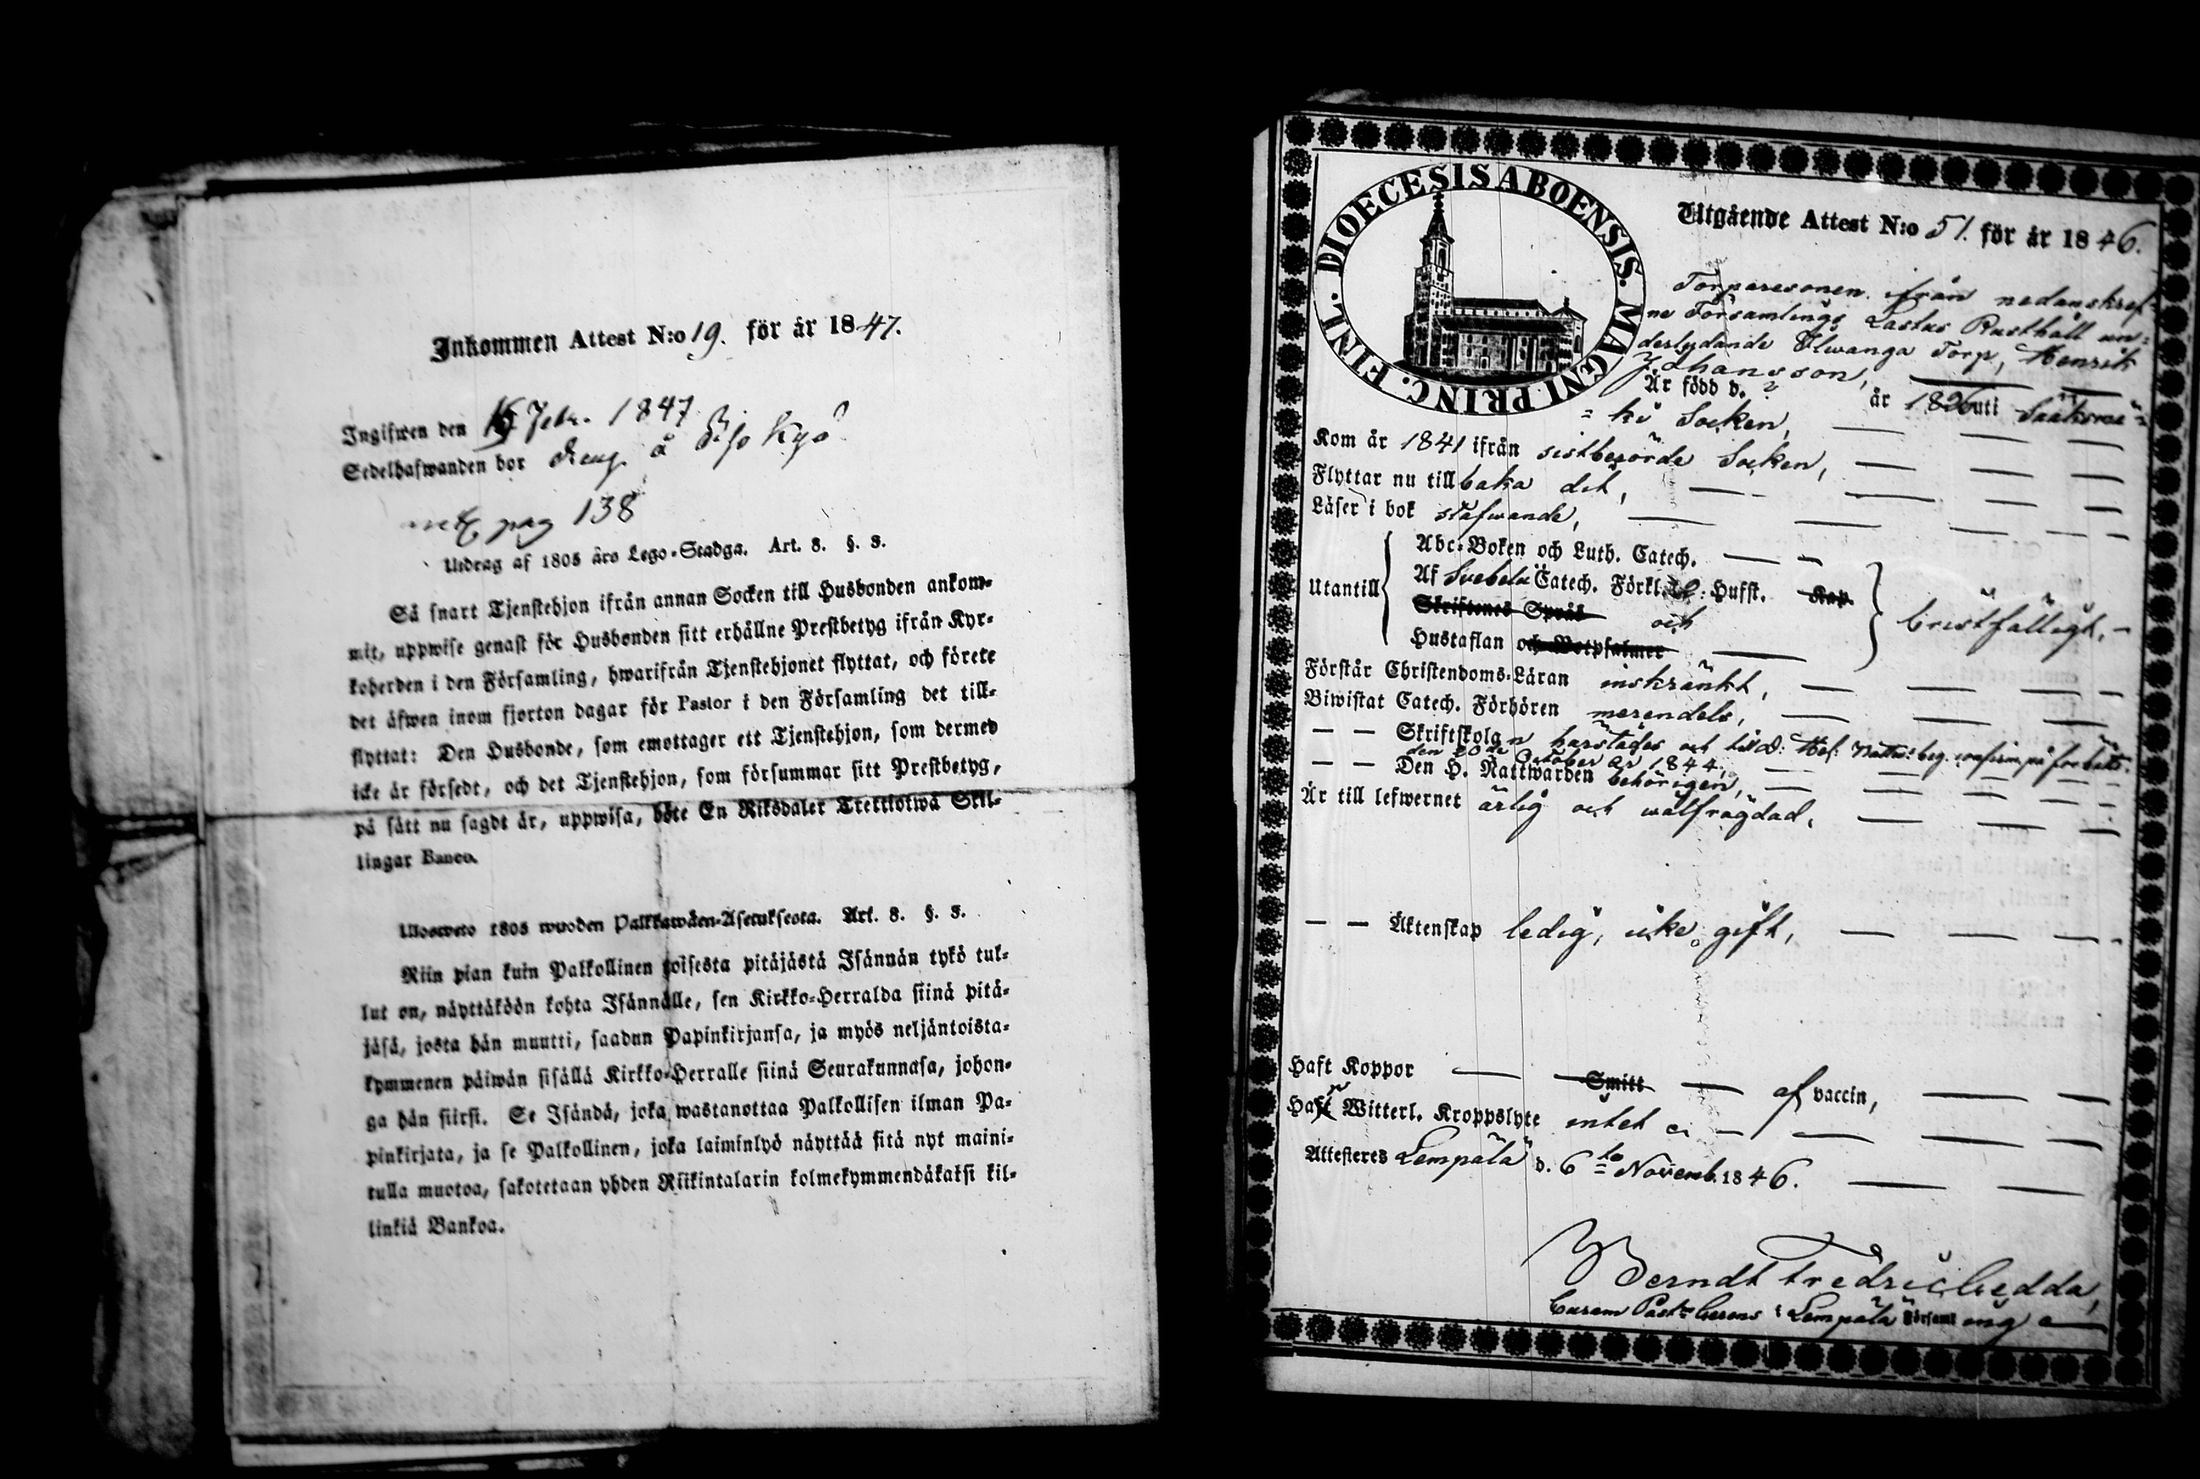 Inkommen Attest N:o 19. för år 1847.
Ingifwen den 15 Febr. 1847
Sedelhafwanden bor dreng å
pag 138
Utdrag af 1805 års Lego-Stadga. Art. 8. §. 3.
Så snart Tjenstehjon ifrån annan Socken till Husbonden ankom-
mit, uppwise genast för Husbonden sitt erhållne Prestbetyg ifrån Kyr-
koherden i den Församling, hwarifrån Tjenstehjonet flyttat, och förete
det äfwen inom fjorton dagar för Pastor i den Församling det till-
flyttat: Den Husbonde, som emottager ett Tjenstehjon, som dermed
icke är försedt, och det Tjenstehjon, som försummar sitt Prestbetyg,
på sätt nu sagdt är, uppwisa, böte En Riksdaler Trettiotwå Skil-
lingar Banco.
Ulosweto 1805 wuoden Palkkawäen-Asetuksesta. Art. 8. §. 3.
Niin pian kuin Palkollinen toisesta pitäjästä Isännän tykö tul-
lut on, näyttäköön kohta Isännälle, sen Kirkko-Herralda siinä pitä-
jäsä, josta hän muutti, saadun Papinkirjansa, ja myös neljäntoista-
kymmenen päiwän sisällä Kirkko-Herralle siinä Seurakunnasa, johon-
ga hän siirsi. Se Isändä, joka wastanottaa Palkollisen ilman Pa-
pinkirjata, ja se Palkollinen, joka laiminlyö näyttää sitä nyt maini-
tulla muotoa, sakotetaan yhden Riikintalarin kolmekymmendäkaksi kil-
linkiä Bankoa.
DIOECESIS ABOENSIS. MAGNI PRINC. FINL.
Utgående Attest N:o 51. för år 1846.
Torparesonen ifrån nedanskref-
ne Församlings Lastus Rusthåll un-
derlydande Ulwanga Torp, Henrik
Johansson,
Är född d. ? år 1826 uti Sääksmä-
ki Socken,
Kom år 1841 ifrån sistberörde Socken,
Flyttar nu tillbaka dit,
Läser i bok stafwande,
Utantill
Abc-Boken och Luth. Catech.
Af Svebelii Catech. Förkl. Hufst. Kap.
Skriftenes Språk och
Hustaflan och Botpsalmer
bristfälligt,
Förstår Christendoms-Läran inskränkt,
Biwistat Catech. Förhören merendels,
Skriftskolan härstädes och till d: Hel: Nattv: beg. confirm. på förbättr.
den 20de October år 1844,
Den H. Nattwarden behörigen,
Är till lefwernet ärlig och wälfrägdad,
Äktenskap ledig, icke gift,
Haft Koppor Smitt af vaccin,
Haft Witterl. Kroppslyte intet
Attesteres Lempälä d. 6te Novemb. 1846.
Berndt Fredric Gedda,
Curam Past: Gerens i Lempälä Församling